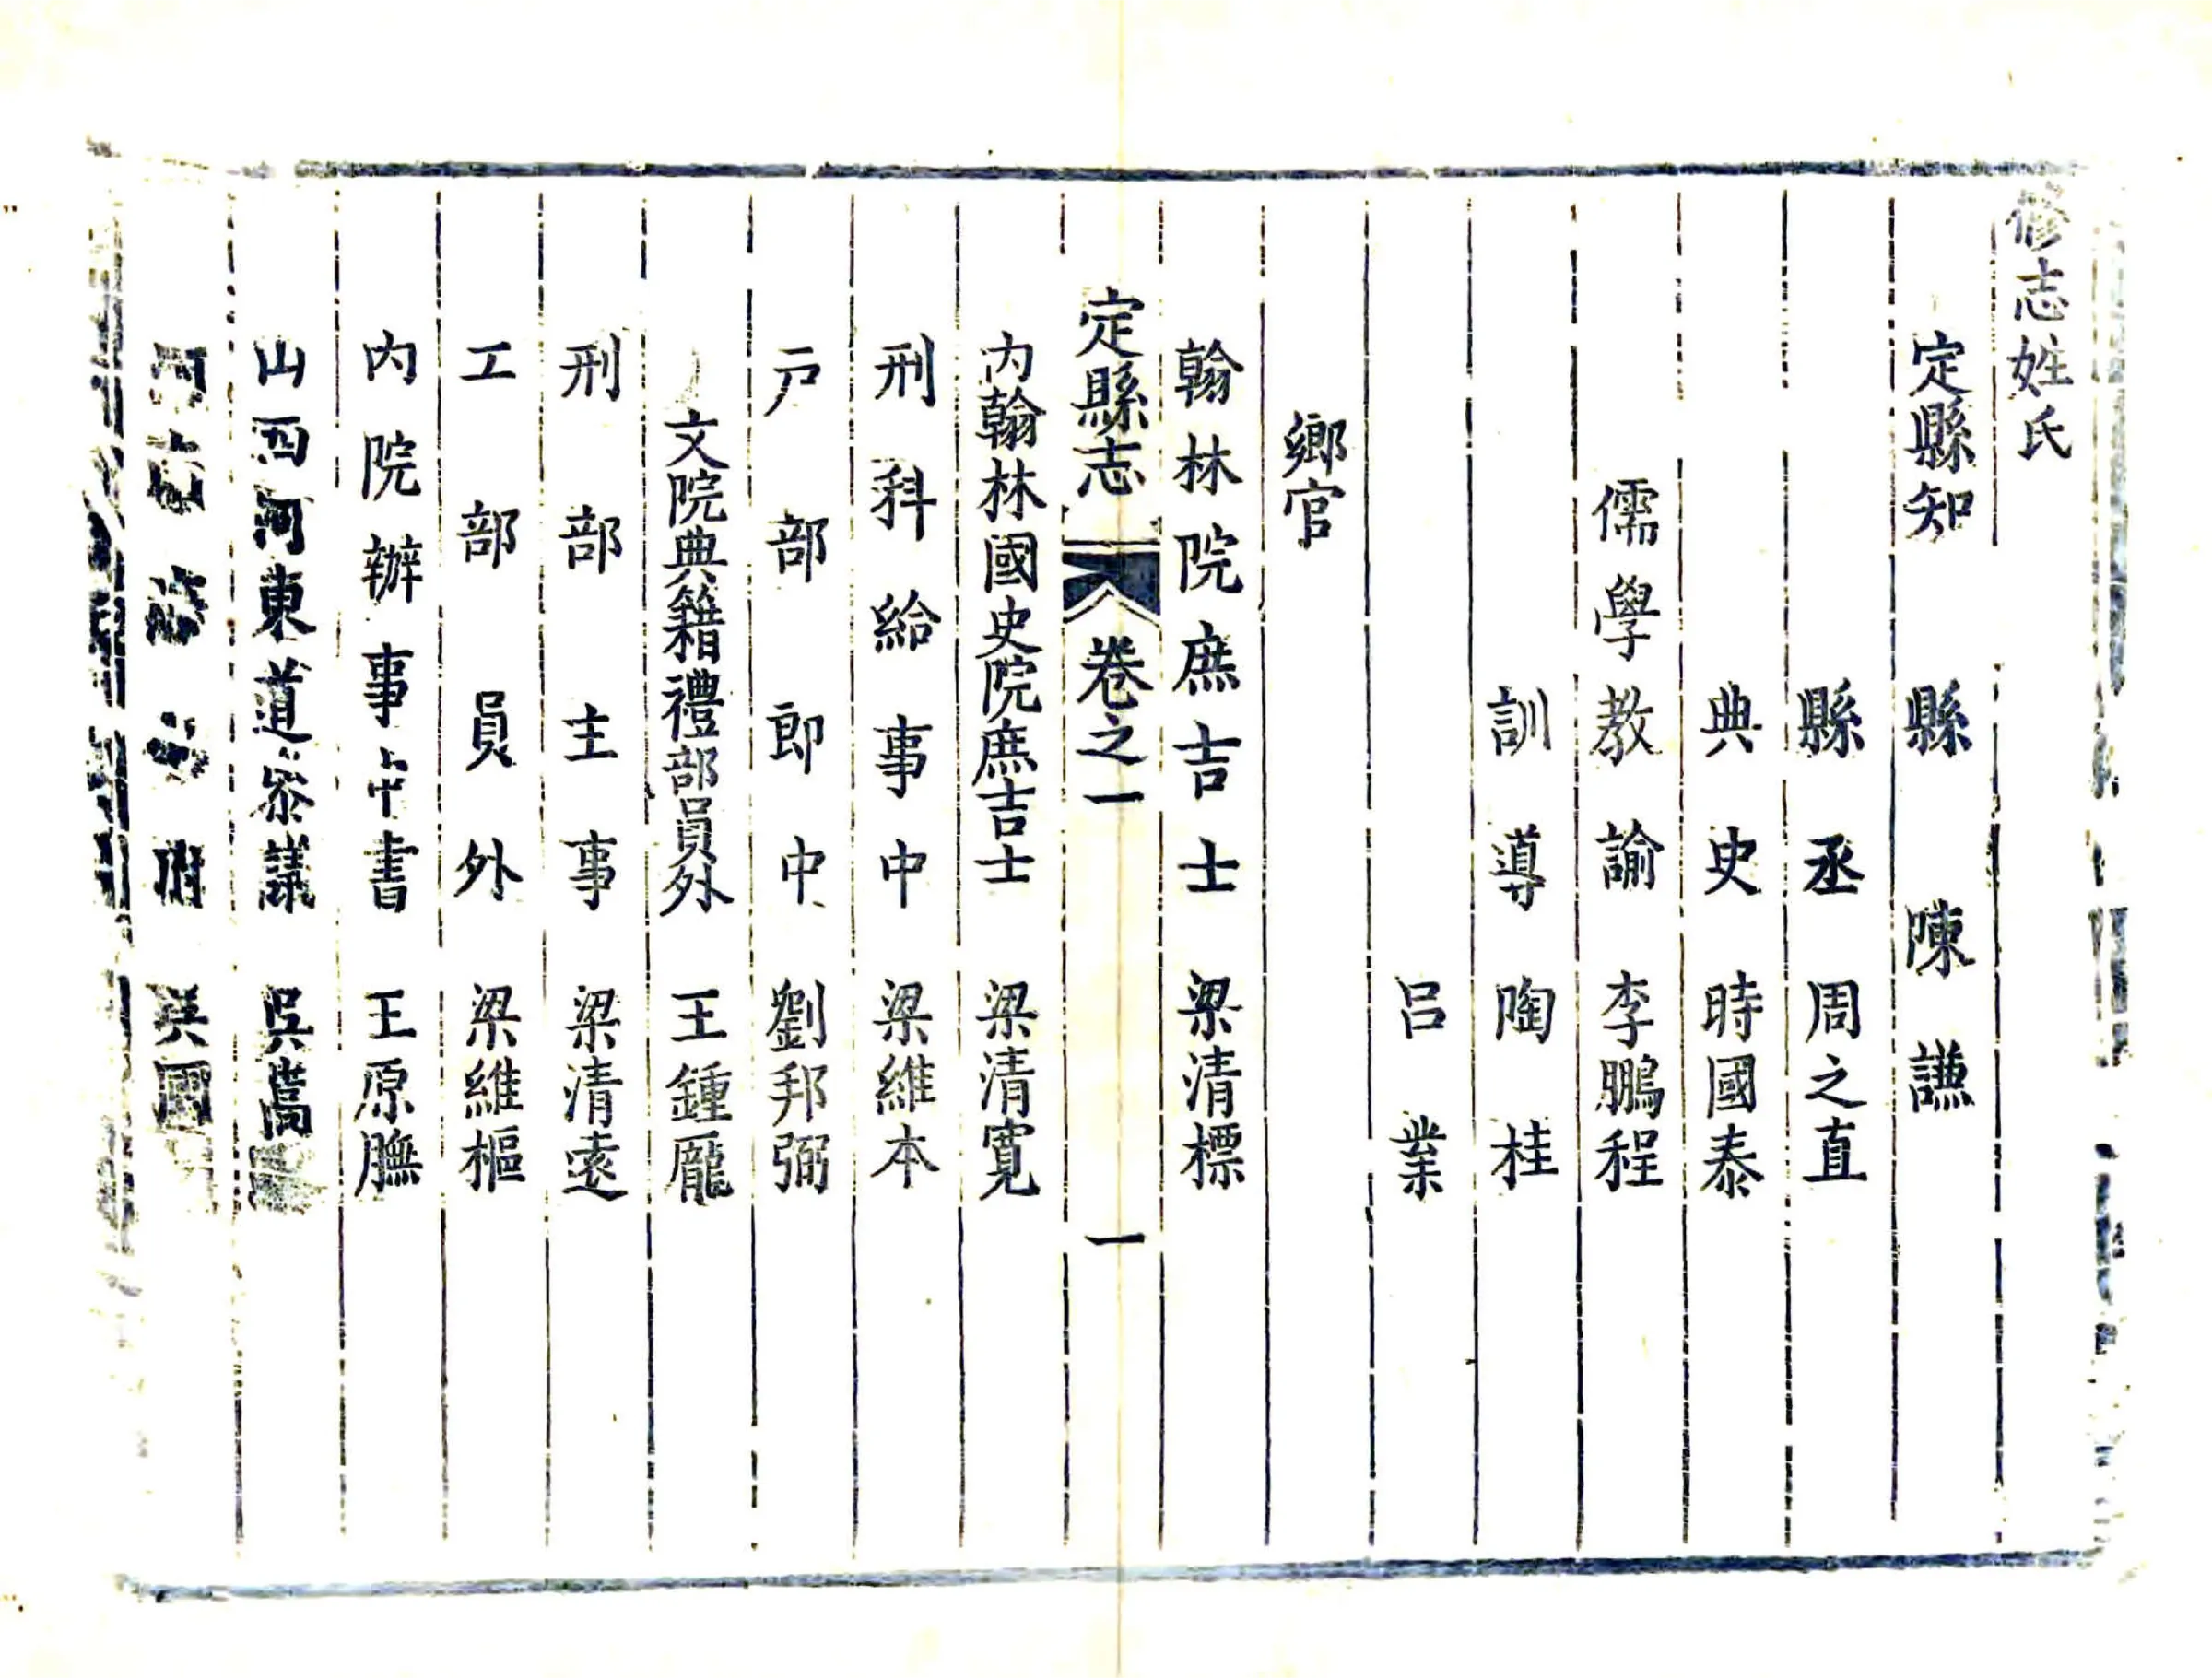 修志姓氏
定縣知縣 陳謙
縣丞 周之直
典史 時國泰
儒學教諭 李鵬程
訓導 陶桂
呂業
鄉官
翰林院庶吉士 梁清標
定縣志 卷之一 一
内翰林國史院庶吉士 梁清寬
刑科給事中 梁維本
戸部郎中 劉邦弼
文院典籍禮部員外 王鍾龎
刑部主事 梁清遠
工部員外 梁維樞
内院辦事中書 王原膴
山西河東道叅議 吳
國